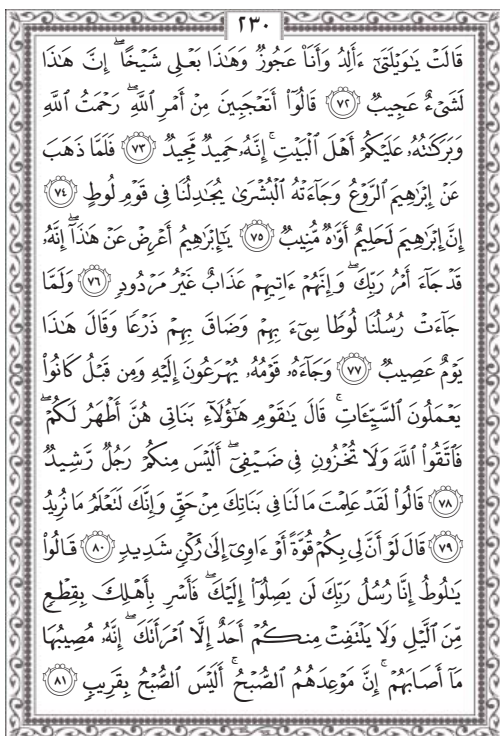 ٢٣٠
قَالَتْ يَـٰوَيْلَتَىٰٓ ءَأَلِدُ وَأَنَا۠ عَجُوزٌ وَهَـٰذَا بَعْلِى شَيْخًا ۖ إِنَّ هَـٰذَا
لَشَىْءٌ عَجِيبٌ ﴿٧٢﴾ قَالُوٓا۟ أَتَعْجَبِينَ مِنْ أَمْرِ ٱللَّهِ ۖ رَحْمَتُ ٱللَّهِ
وَبَرَكَـٰتُهُۥ عَلَيْكُمْ أَهْلَ ٱلْبَيْتِ ۚ إِنَّهُۥ حَمِيدٌ مَّجِيدٌ ﴿٧٣﴾ فَلَمَّا ذَهَبَ
عَنْ إِبْرَٰهِيمَ ٱلرَّوْعُ وَجَآءَتْهُ ٱلْبُشْرَىٰ يُجَـٰدِلُنَا فِى قَوْمِ لُوطٍ ﴿٧٤﴾
إِنَّ إِبْرَٰهِيمَ لَحَلِيمٌ أَوَّٰهٌ مُّنِيبٌ ﴿٧٥﴾ يَـٰٓإِبْرَٰهِيمُ أَعْرِضْ عَنْ هَـٰذَآ ۖ إِنَّهُۥ
قَدْ جَآءَ أَمْرُ رَبِّكَ ۖ وَإِنَّهُمْ ءَاتِيهِمْ عَذَابٌ غَيْرُ مَرْدُودٍ ﴿٧٦﴾ وَلَمَّا
جَآءَتْ رُسُلُنَا لُوطًا سِىٓءَ بِهِمْ وَضَاقَ بِهِمْ ذَرْعًا وَقَالَ هَـٰذَا
يَوْمٌ عَصِيبٌ ﴿٧٧﴾ وَجَآءَهُۥ قَوْمُهُۥ يُهْرَعُونَ إِلَيْهِ وَمِن قَبْلُ كَانُوا۟
يَعْمَلُونَ ٱلسَّيِّـَٔاتِ ۚ قَالَ يَـٰقَوْمِ هَـٰٓؤُلَآءِ بَنَاتِى هُنَّ أَطْهَرُ لَكُمْ ۖ
فَٱتَّقُوا۟ ٱللَّهَ وَلَا تُخْزُونِ فِى ضَيْفِىٓ ۖ أَلَيْسَ مِنكُمْ رَجُلٌ رَّشِيدٌ
﴿٧٨﴾ قَالُوا۟ لَقَدْ عَلِمْتَ مَا لَنَا فِى بَنَاتِكَ مِنْ حَقٍّ وَإِنَّكَ لَتَعْلَمُ مَا نُرِيدُ
﴿٧٩﴾ قَالَ لَوْ أَنَّ لِى بِكُمْ قُوَّةً أَوْ ءَاوِىٓ إِلَىٰ رُكْنٍ شَدِيدٍ ﴿٨٠﴾ قَالُوا۟
يَـٰلُوطُ إِنَّا رُسُلُ رَبِّكَ لَن يَصِلُوٓا۟ إِلَيْكَ ۖ فَأَسْرِ بِأَهْلِكَ بِقِطْعٍ
مِّنَ ٱلَّيْلِ وَلَا يَلْتَفِتْ مِنكُمْ أَحَدٌ إِلَّا ٱمْرَأَتَكَ ۖ إِنَّهُۥ مُصِيبُهَا
مَآ أَصَابَهُمْ ۚ إِنَّ مَوْعِدَهُمُ ٱلصُّبْحُ ۚ أَلَيْسَ ٱلصُّبْحُ بِقَرِيبٍ ﴿٨١﴾